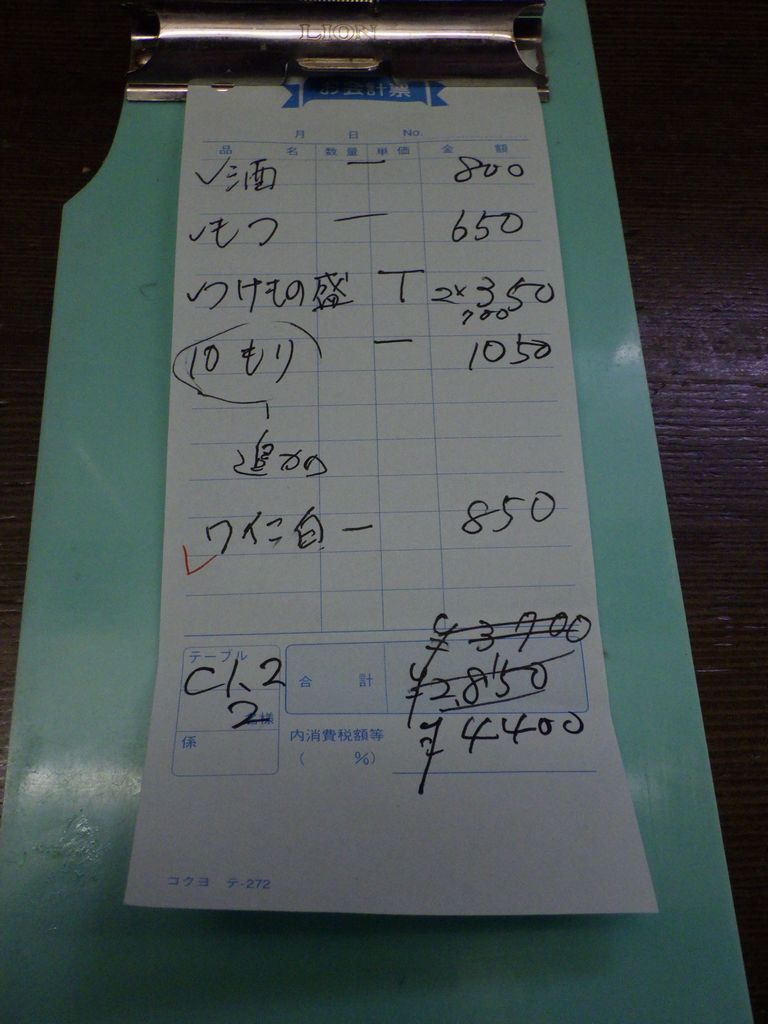 LION
お会計票
月 日 No.
品 名 数量 単価 金 額
✓酒 一 800
✓もつ 一 650
✓つけもの盛 T 2×350
700
10もり 一 1050
追加の
ワイン白 一 850
✓
¥3700
テーブル
C1.2
合 計 ¥2,850
2名様
¥4400
係
内消費税額等
( %)
コクヨ テ-272